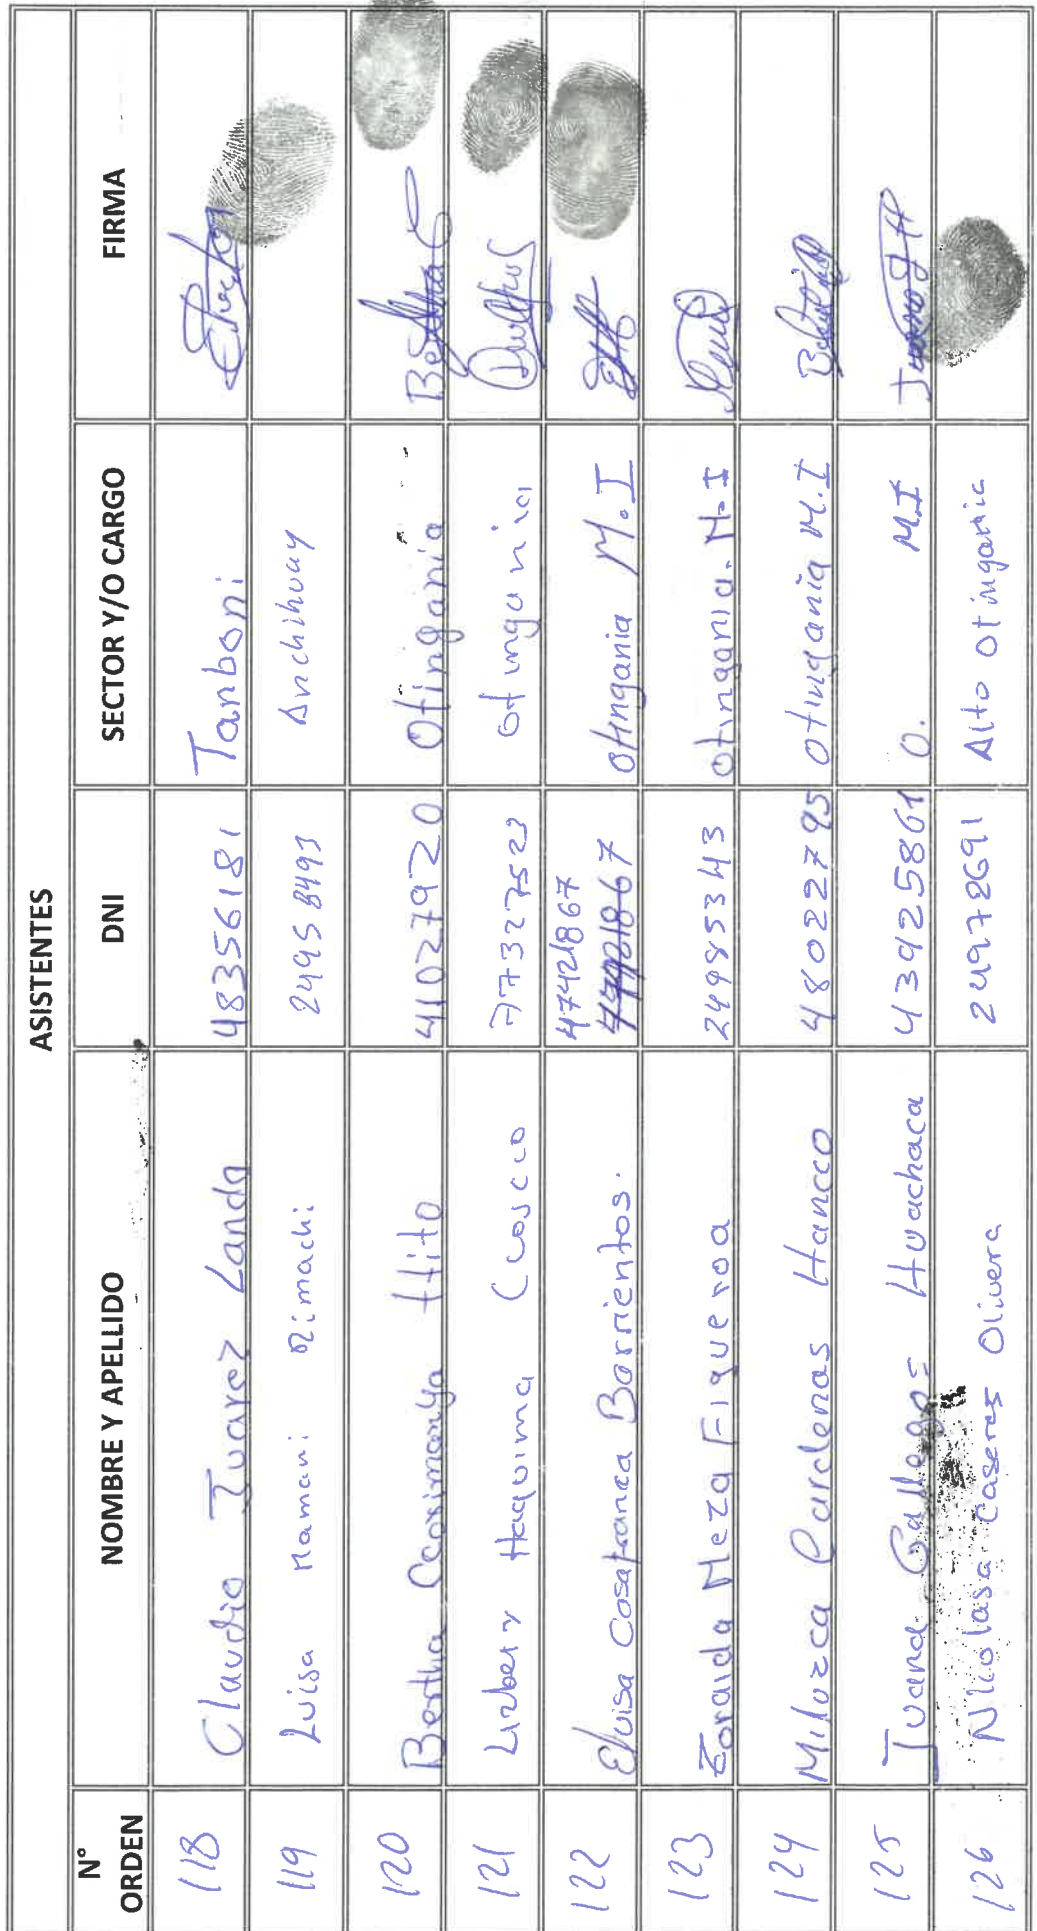 ASISTENTES
N° ORDEN NOMBRE Y APELLIDO DNI SECTOR Y/O CARGO FIRMA
118 Claudio Juarez Landa 48356181 Tanboni
119 Luisa Mamani Rimachi 24958493 Anchihuay
120 Bertha Ccorimanya Hito 41027920 Otingania
121 Lizbeth Haquima Ccoscco 77327523 otingunia
47421867
122 Eluisa Cosafranca Barrientos. Otingania M.I
123 Zoraida Meza Figueroa 24985343 otingania. M.I
124 Miluzca Cardenas Hancco 48022795 Otingania M.I
125 Juana Gallegos Huachaca 43925861 O. M.I
126 Nicolasa Caseres Olivera 24972691 Alto otingania